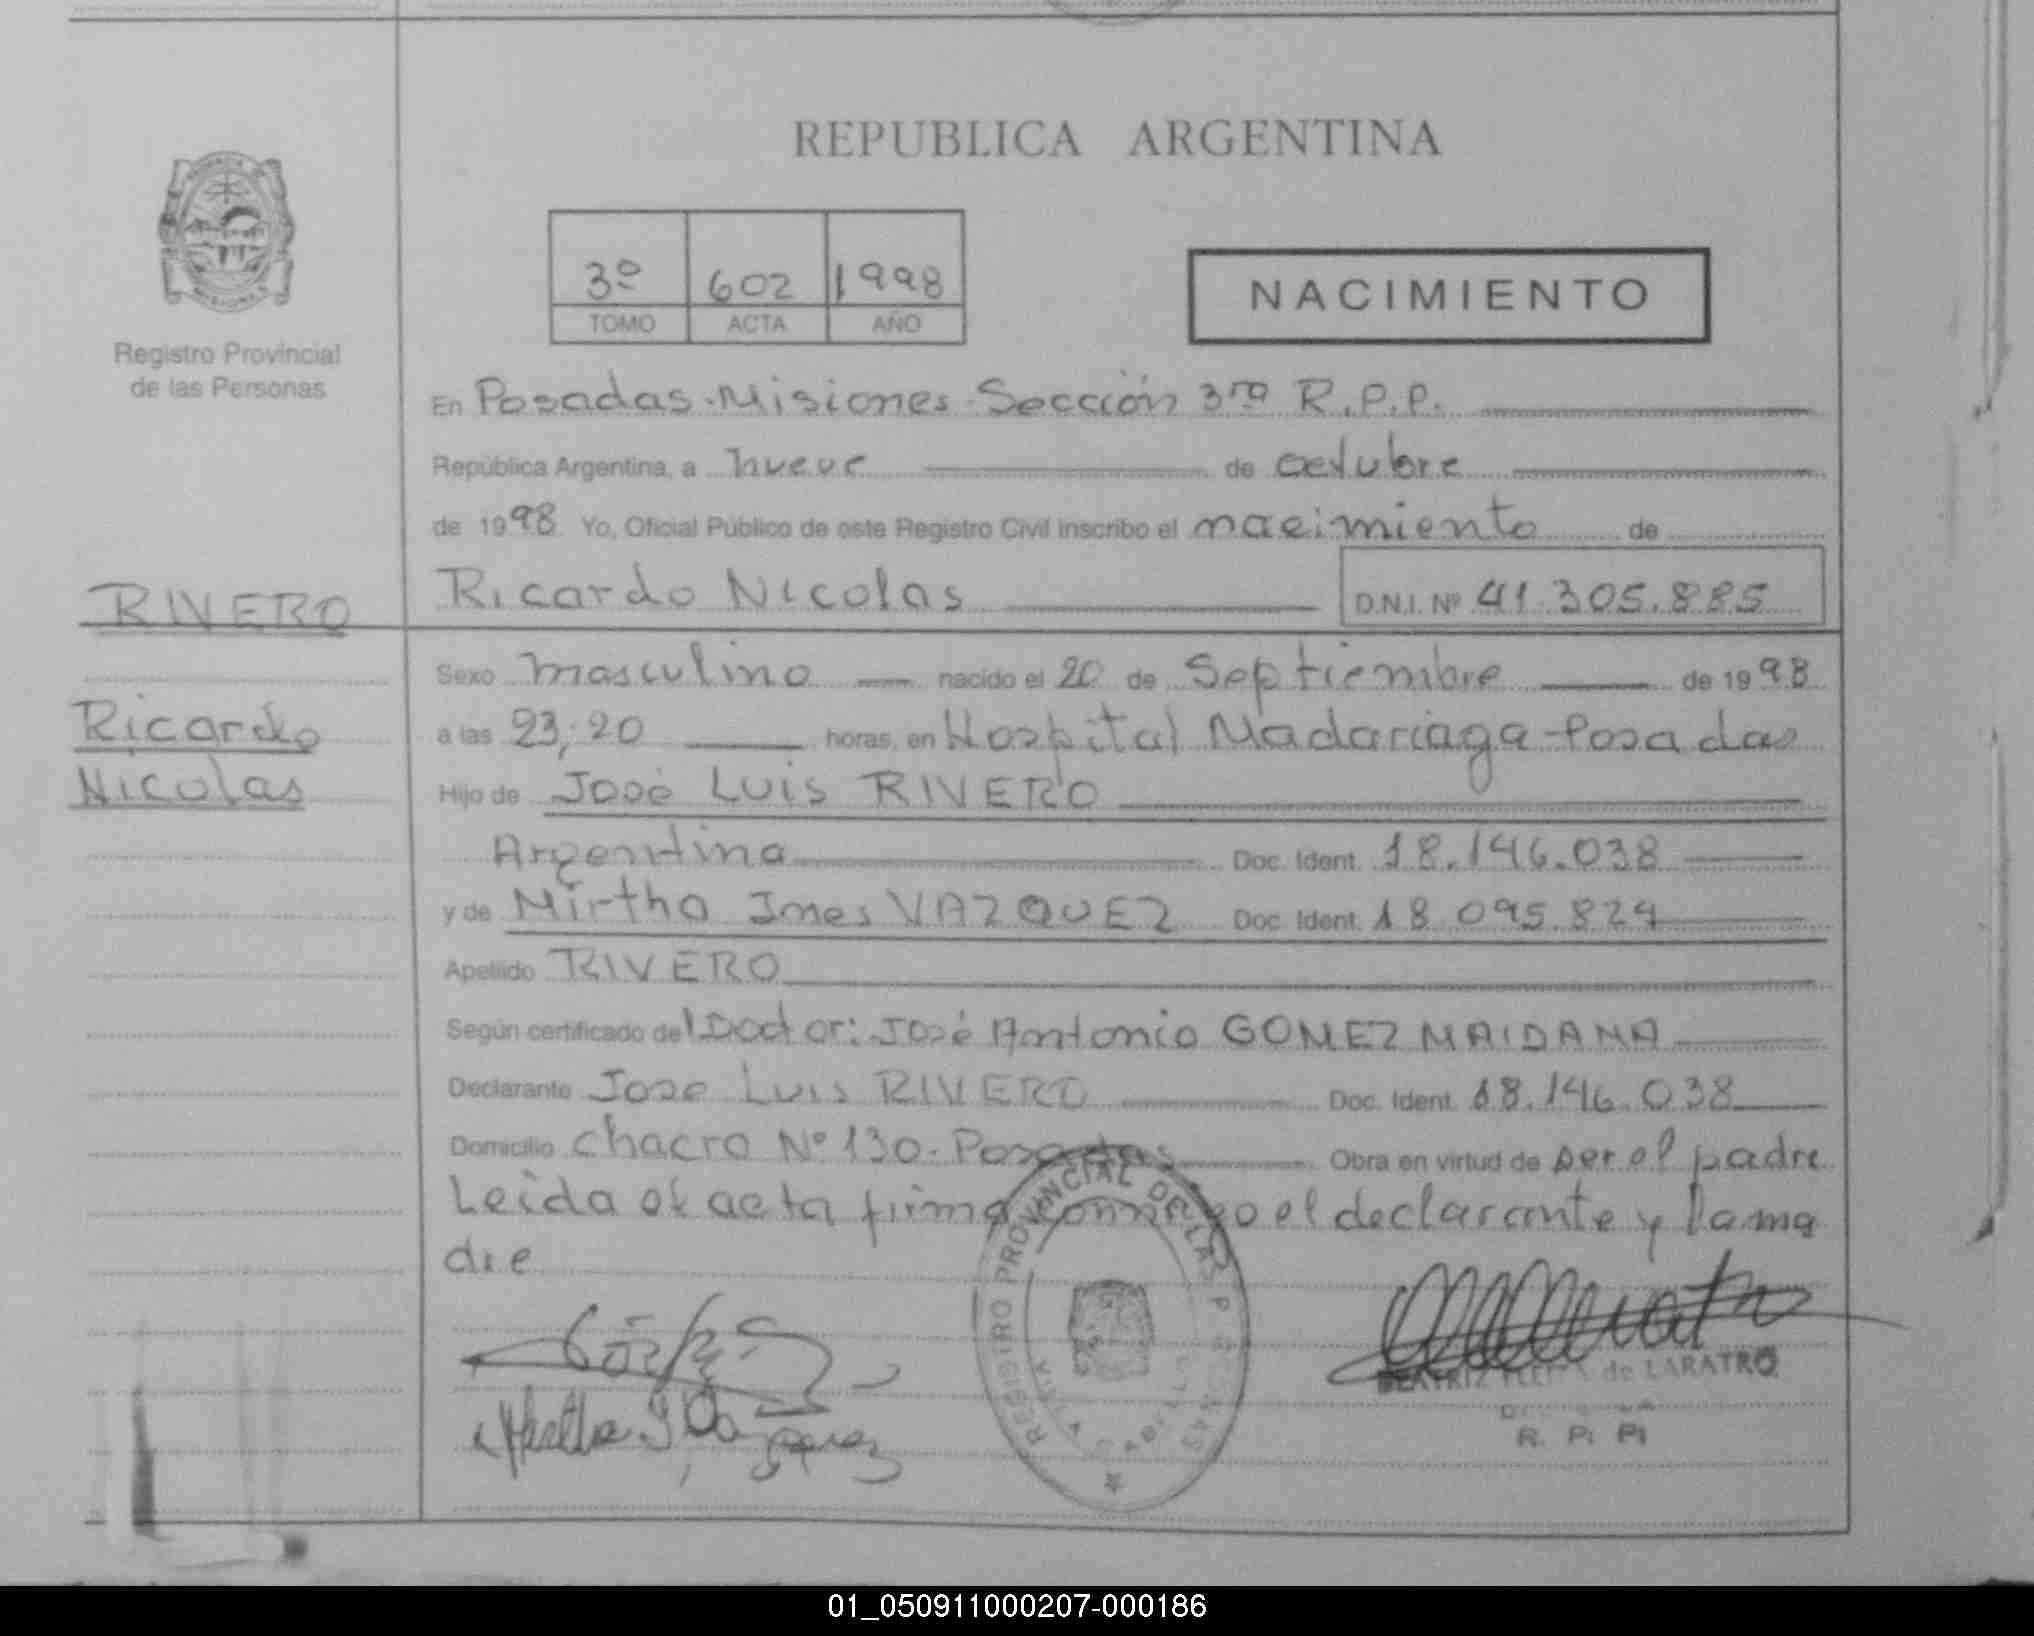 REPUBLICA ARGENTINA
3º 602 1998
TOMO ACTA AÑO
NACIMIENTO
Registro Provincial
de las Personas
En Posadas-Misiones-Sección 3ra R.P.P.
República Argentina, a nueve de octubre
de 1998 Yo, Oficial Público de este Registro Civil inscribo el nacimiento de
RIVERO
Ricardo Nicolas D.N.I. Nº 41.305.885
Sexo masculino nacido el 20 de Septiembre de 1998
Ricardo
a las 23,20 horas, en Hospital Madariaga-Posadas
Nicolas
Hijo de José Luis RIVERO
Argentina Doc. Ident. 18.146.038
y de Mirtha Ines VAZQUEZ Doc. Ident. 18.095.824
Apellido RIVERO
Según certificado del Doctor: José Antonio GOMEZ MAIDANA
Declarante Jose Luis RIVERO Doc. Ident. 18.146.038
Domicilio chacra Nº 130-Posadas Obra en virtud de ser el padre
Leida el acta firma conmigo el declarante y la ma
dre
REGISTRO PROVINCIAL DE LAS
BEATRIZ de LARATRO
R. P. P.
01_050911000207-000186